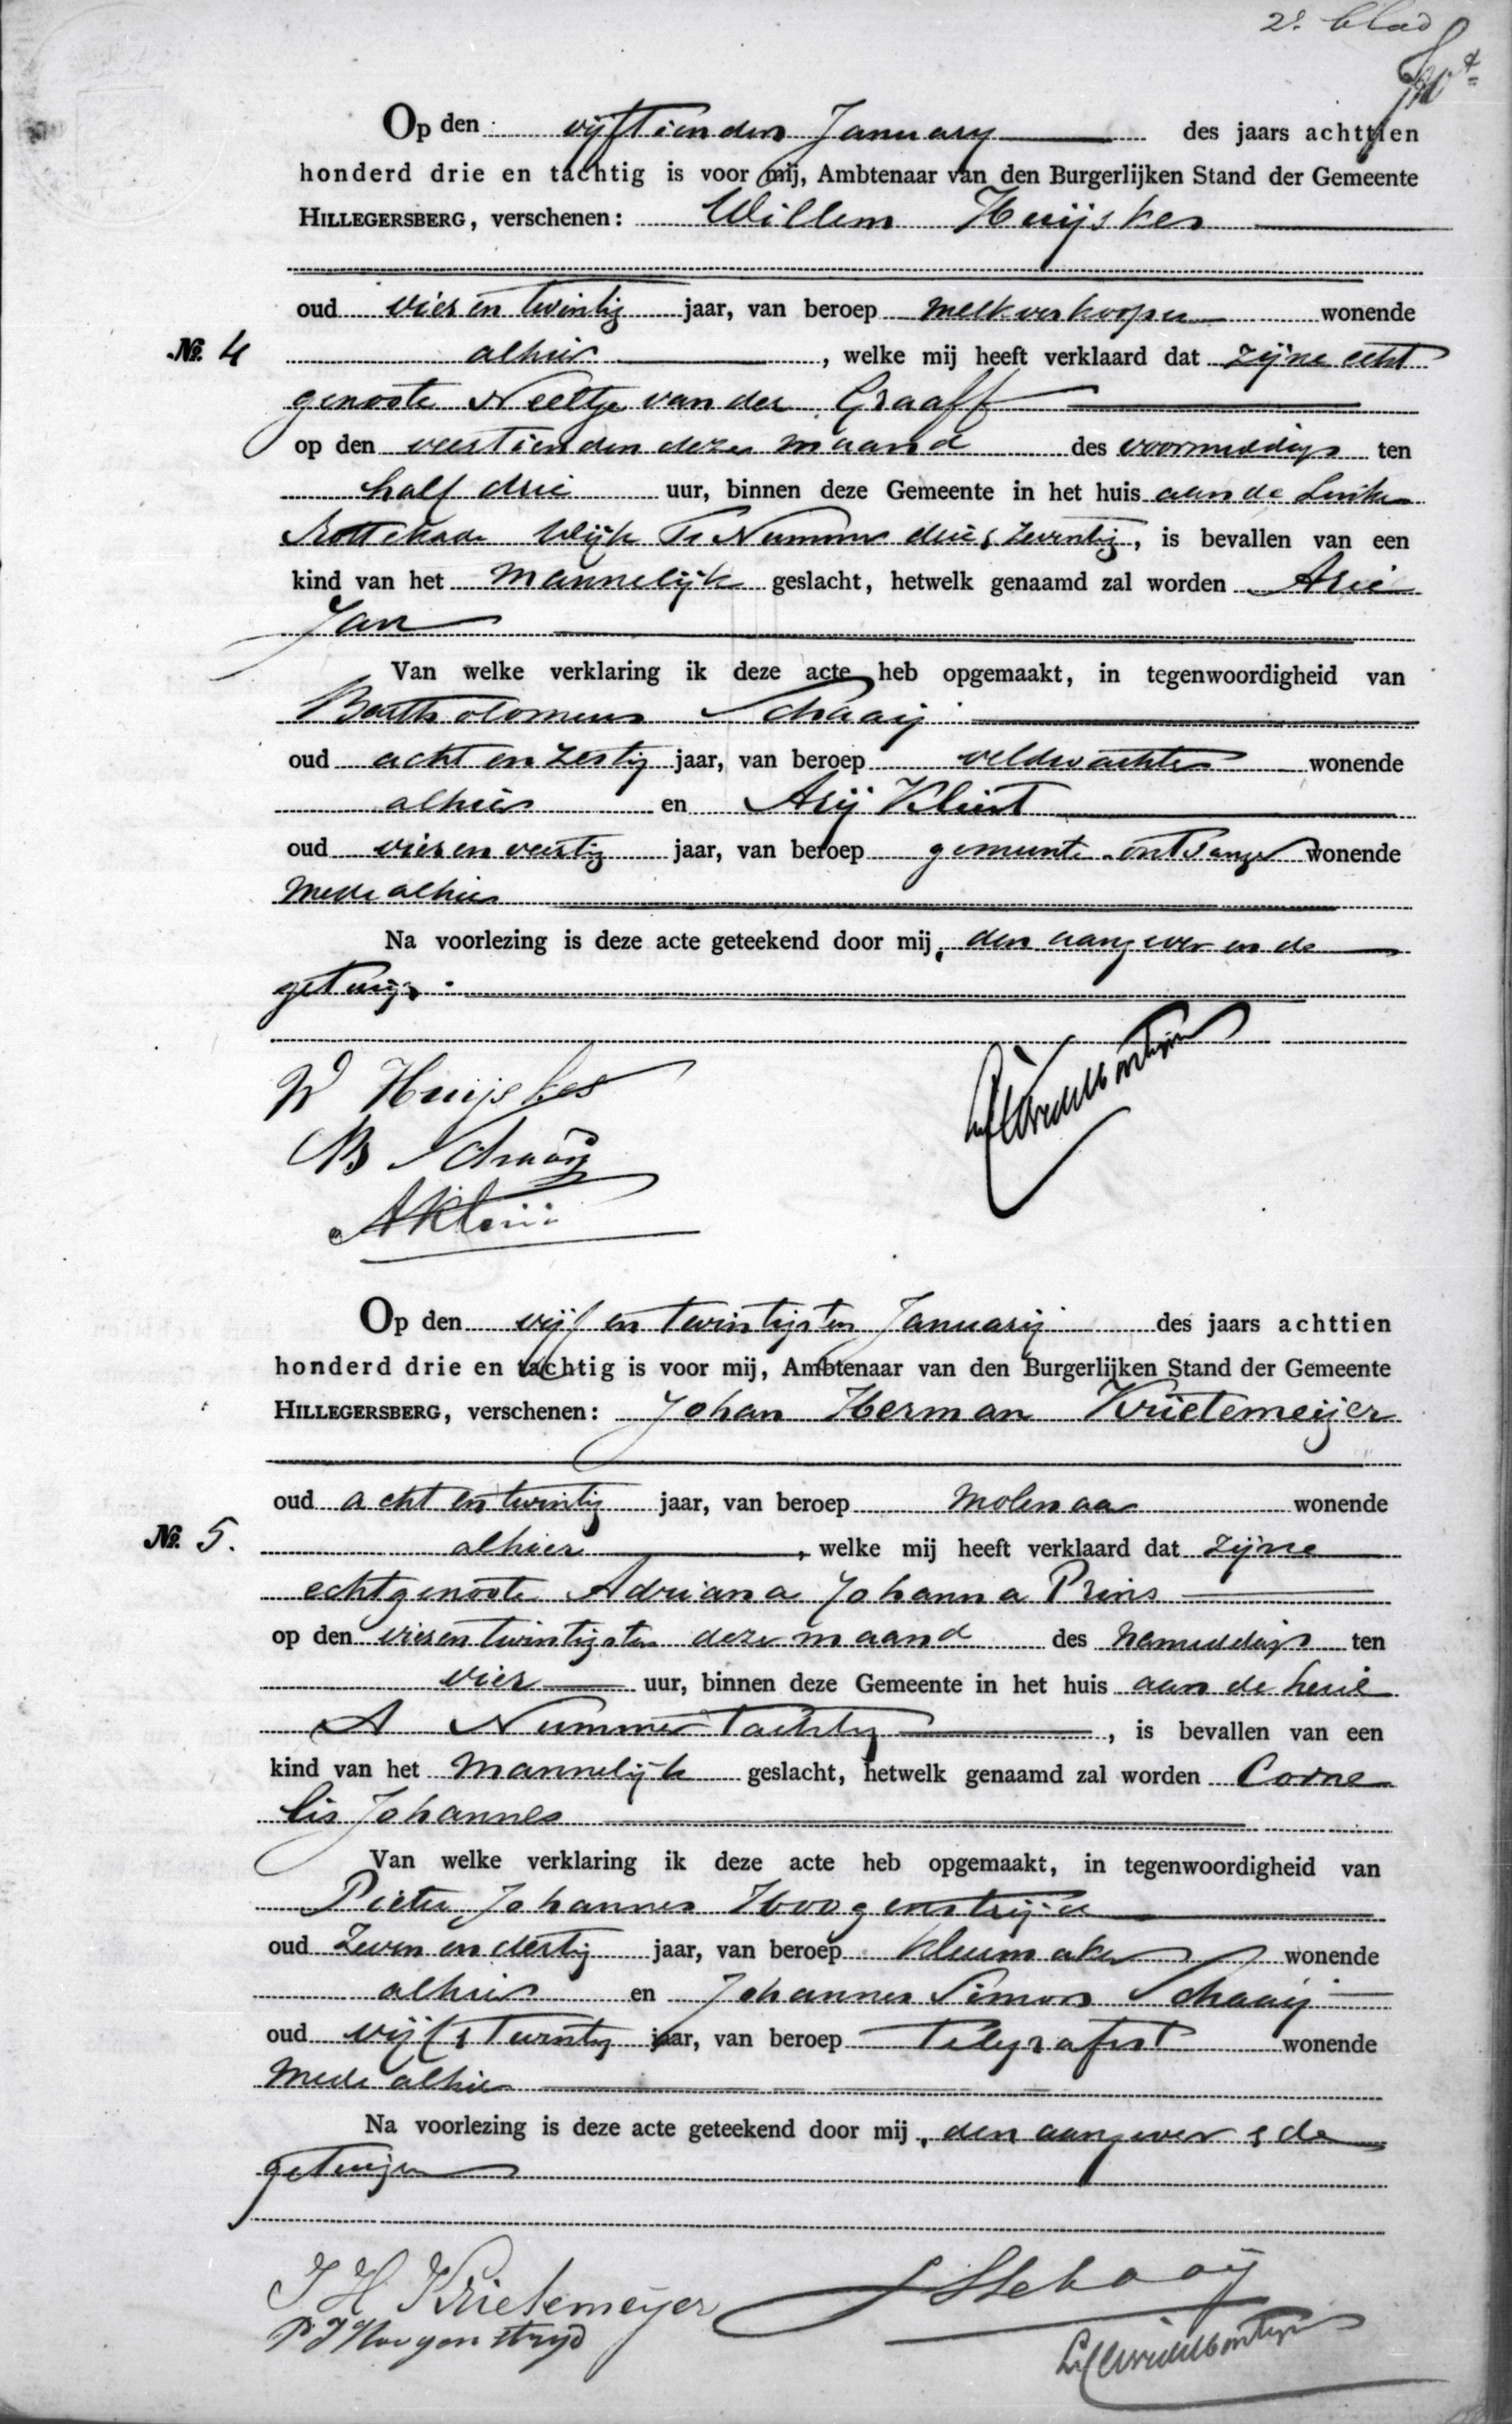 2e blad
Op den vijftienden January des jaars achttien
honderd drie en tachtig is voor mij, Ambtenaar van den Burgerlijken Stand der Gemeente
HILLEGERSBERG, verschenen: Willem Huijskes
oud vier en twintig jaar, van beroep melkverkooper wonende
No. 4 alhier, welke mij heeft verklaard dat zijne echt
genoote Neeltje van der Graaff
op den veertienden dezer maand des voormiddags ten
half drie uur, binnen deze Gemeente in het huis aan de Linker
Rottekade Wijk Nummer drie & zeventig, is bevallen van een
kind van het Mannelijk geslacht, hetwelk genaamd zal worden Arie
Jan
Van welke verklaring ik deze acte heb opgemaakt, in tegenwoordigheid van
Bartholomeus Schaaij
oud acht en zestig jaar, van beroep veldwachter wonende
alhier en Arij Klein
oud vier en veertig jaar, van beroep gemeente-ontvanger wonende
mede alhier
Na voorlezing is deze acte geteekend door mij, den aangever en de
getuigen.
W Huijskes
B Schaaij
A Klein
Op den vijf en twintigsten Januarij des jaars achttien
honderd drie en tachtig is voor mij, Ambtenaar van den Burgerlijken Stand der Gemeente
HILLEGERSBERG, verschenen: Johan Herman Krietemeijer
oud acht en twintig jaar, van beroep Molenaar wonende
No. 5. alhier, welke mij heeft verklaard dat zijne
echtgenoote Adriana Johanna Prins
op den vier en twintigsten dezer maand des namiddags ten
vier uur, binnen deze Gemeente in het huis aan de heul
A Nummer tachtig, is bevallen van een
kind van het Mannelijk geslacht, hetwelk genaamd zal worden Corne
lis Johannes
Van welke verklaring ik deze acte heb opgemaakt, in tegenwoordigheid van
Pieter Johannes Hoogenstrijd
oud Zeven en dertig jaar, van beroep kleermaker wonende
alhier en Johannes Simon Schaaij
oud vijf & twintig jaar, van beroep Telegrafist wonende
Mede alhier
Na voorlezing is deze acte geteekend door mij, den aangever & de
getuigen
J H Krietemeyer
J S Schaaij
P J Hoogenstryd